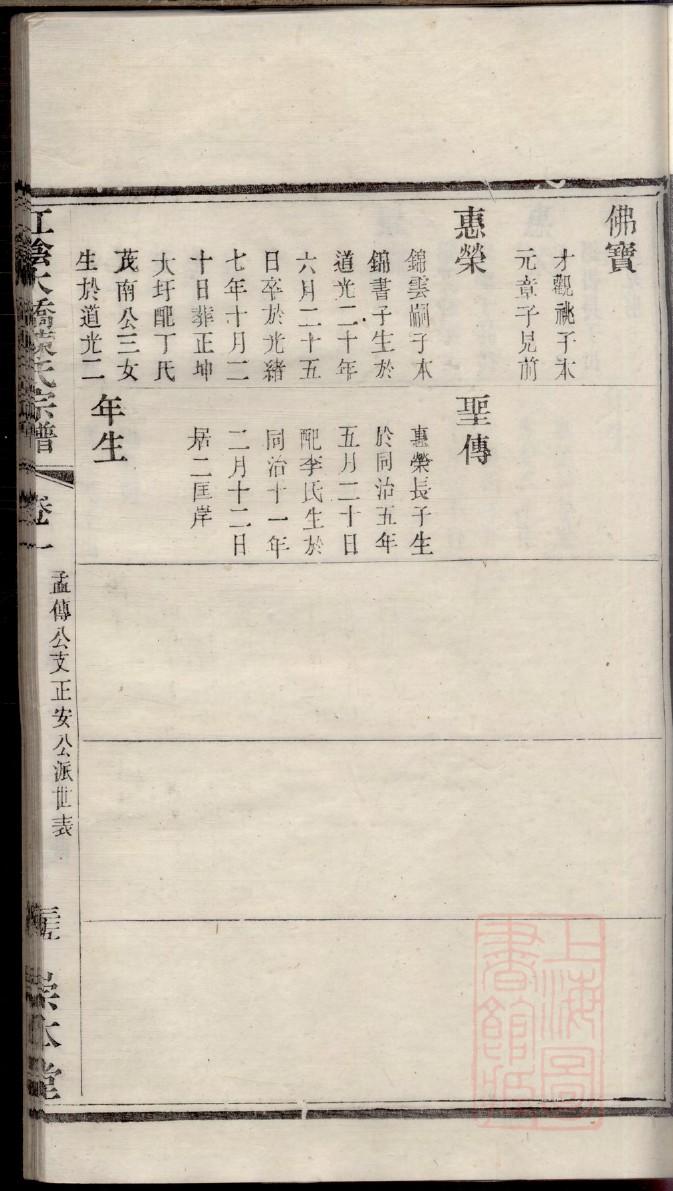 佛寶
才觀祧子本
元章子見前
惠榮
錦雲嗣子本
錦書子生於
道光二十年
六月二十五
日卒於光緒
七年十月二
十日葬正坤
大圩配丁氏
茂南公三女
生於道光二
聖傳
惠榮長子生
於同治五年
五月二十日
配李氏生於
同治十一年
二月十二日
居二匡岸
年生
江陰大橋 氏宗譜
卷一
孟傳公支正安公派世表
宗本堂
上海圖書館藏